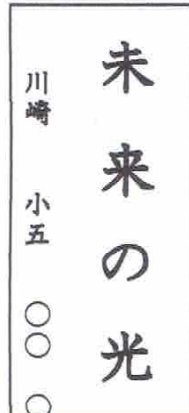 未来の光
川崎 小五 ○○ ○